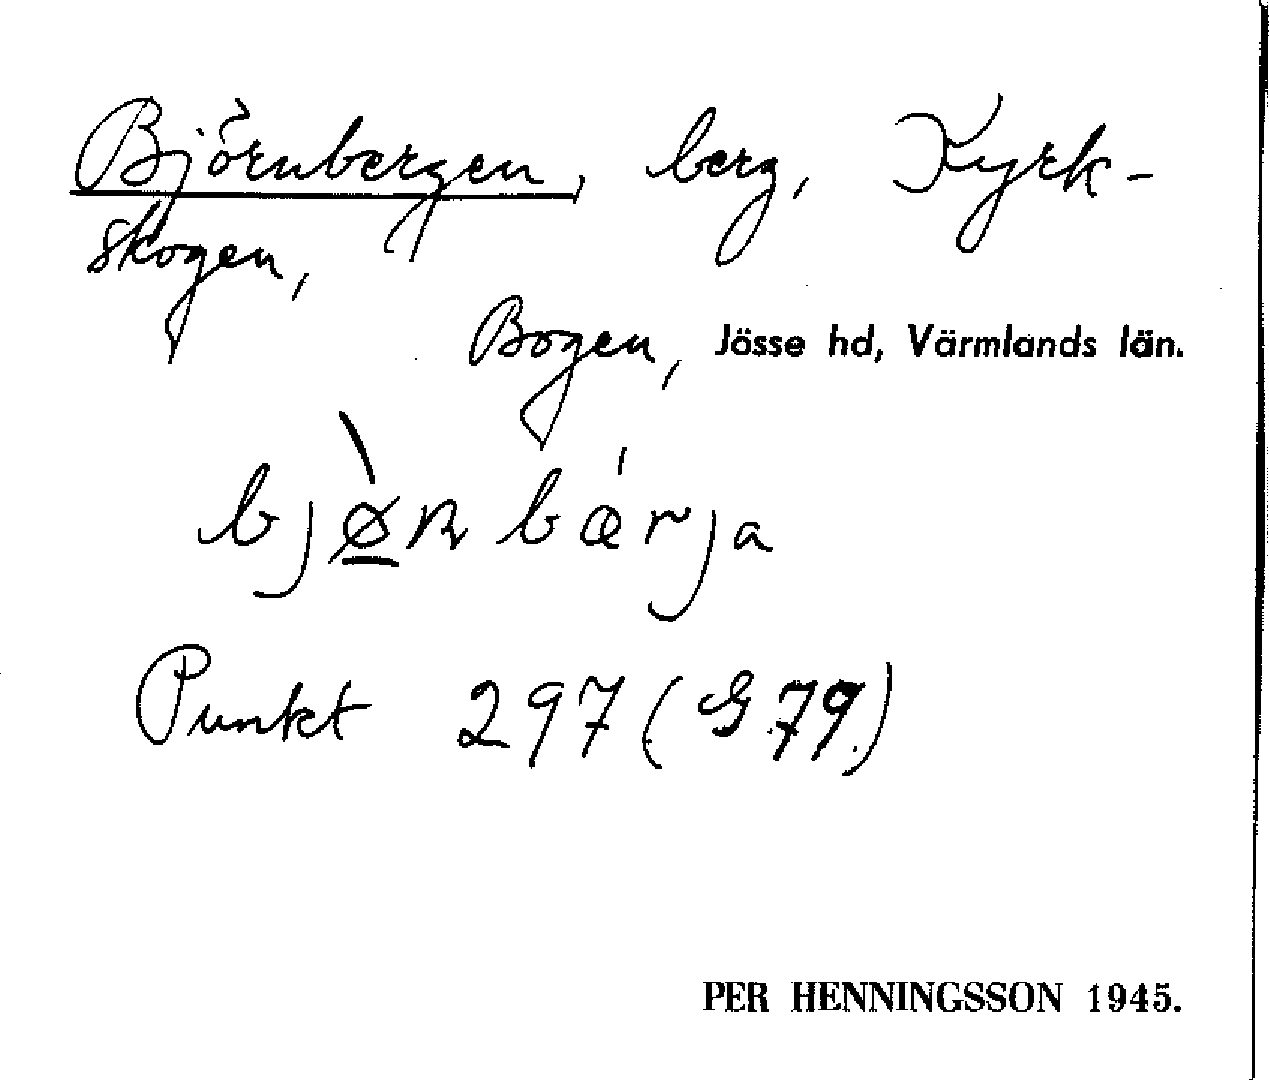 Björnbergen, berg, Kyrk-
skogen,
Bogen, Jösse hd, Värmlands län.
bjø̲̀n bǽrja
Punkt 297 (G 79)
PER HENNINGSSON 1945.